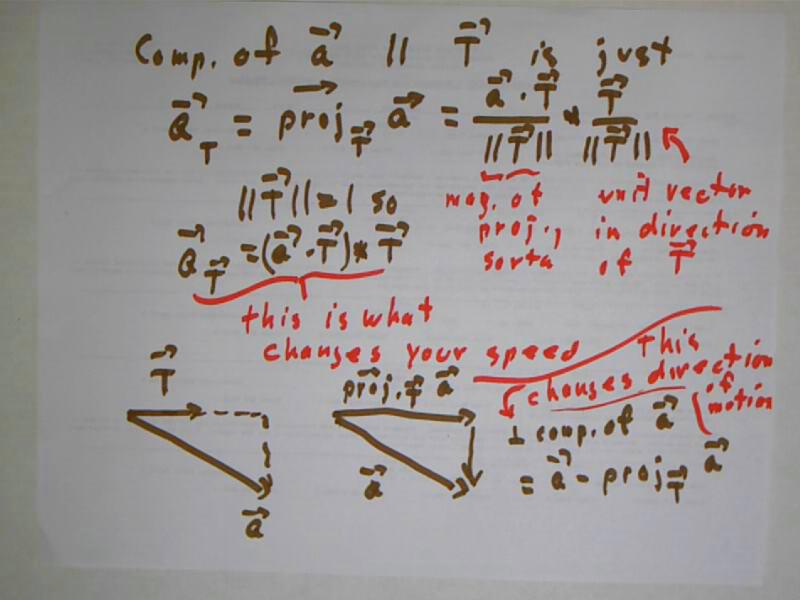 Comp. of a⃗ || T⃗ is just
a⃗_T = proj_T⃗ a⃗ = (a⃗ · T⃗)/||T⃗|| * T⃗/||T⃗||
||T⃗|| = 1 so
a⃗_T⃗ = (a⃗ · T⃗) * T⃗
mag. of
proj.,
sorta
unit vector
in direction
of T⃗
this is what
changes your speed
This
changes direction
of
motion
T⃗
a⃗
proj._T⃗ a⃗
a⃗
⊥ comp. of a⃗
= a⃗ - proj_T⃗ a⃗